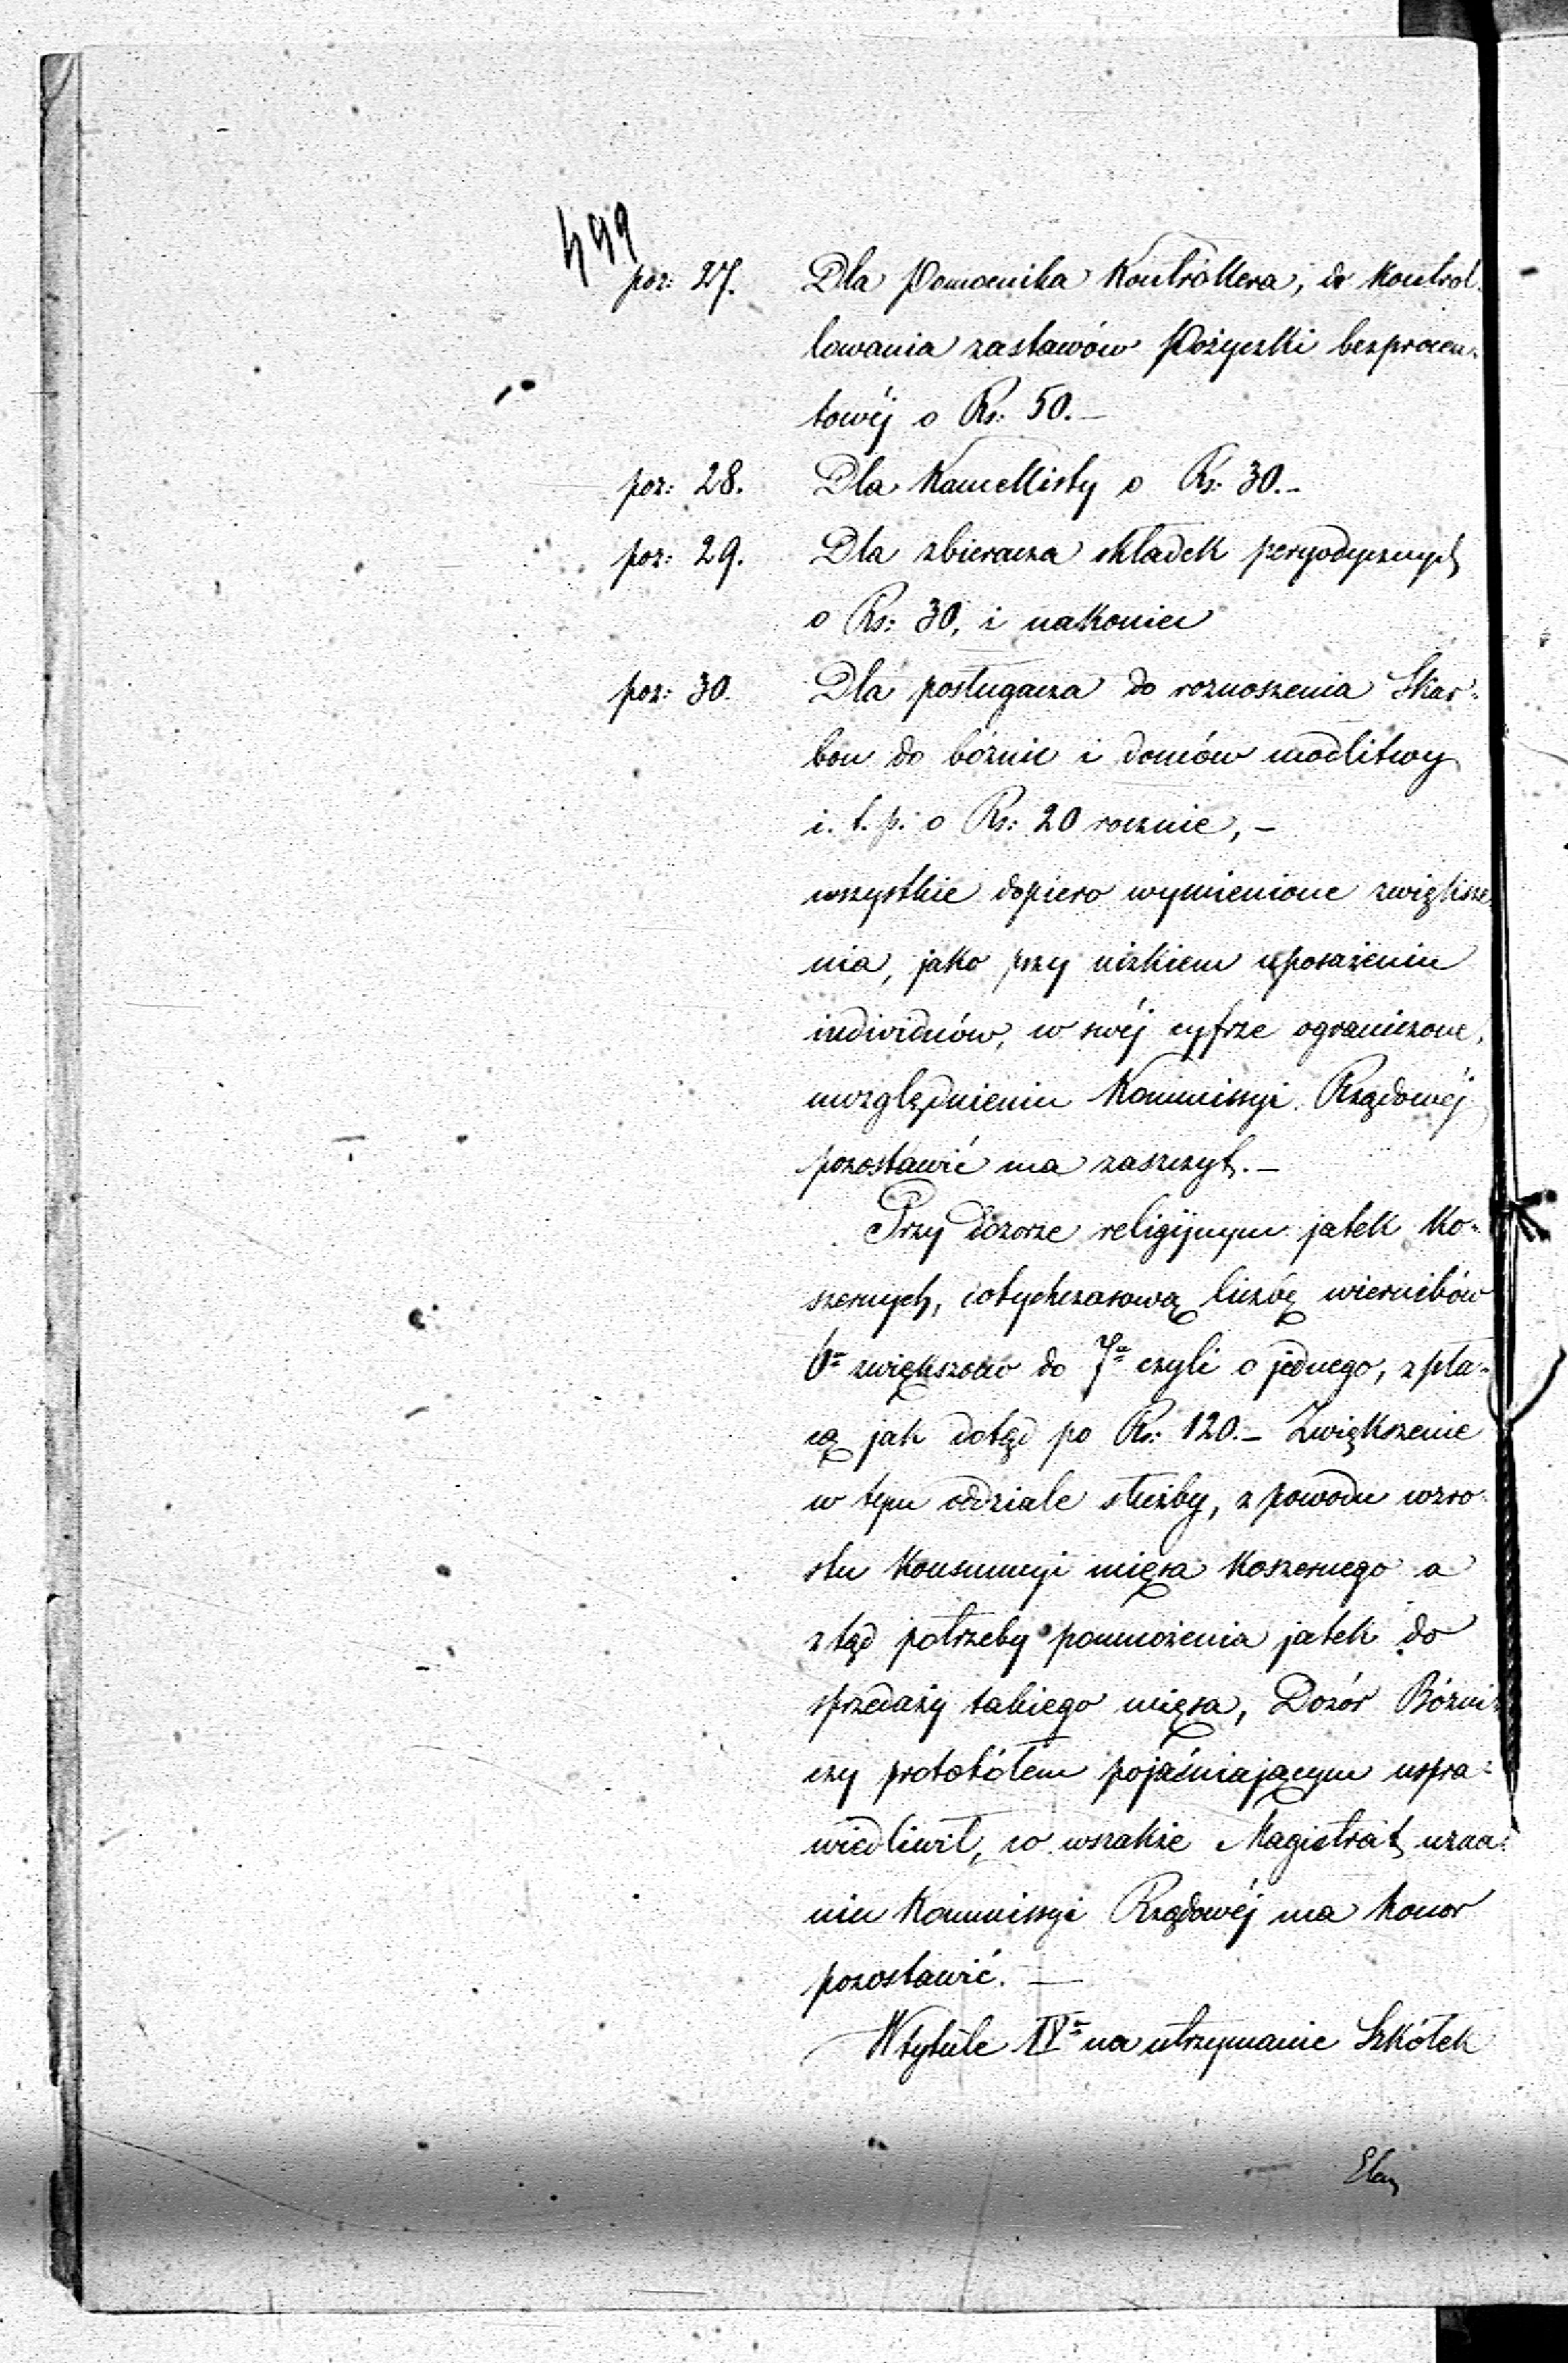 499
poz: 27. Dla Pomocnika Kontrollera, do Kontrol-
lowania zastawów Pożyczki bezprocen-
towéj o Rs: 50.—
poz: 28. Dla Kancellisty o Rs: 30.—
poz: 29. Dla zbieracza składek peryodycznych
o Rs: 30, i nakoniec
poz: 30. Dla posługacza do roznoszenia Skar-
bon do bóżnic i domów modlitwy
i. t. p. o Rs: 20 rocznie, —
wszystkie dopiero wymienione zwiększe-
nia, jako przy nizkiem uposażeniu
individuów, w swéj cyfrze ograniczone,
uwzględnieniu Kommissyi Rządowéj
pozostawić ma zaszczyt.—
Przy dozorze religijnym jatek Ko-
szernych, dotychczasową liczbę wierników
6= zwiększono do 7= czyli o jednego, z pła-
cą jak dotąd po Rs: 120.— Zwiększenie
w tym oddziale służby, z powodu wzro-
stu Konsumcyi mięsa Koszernego a
ztąd potrzeby pomnożenia jatek do
sprzedaży takiego mięsa, Dozór Bóżni-
czy protokółem pojaśniającym uspra-
wiedliwił, co wszakże Magistrat uzna-
niu Kommissyi Rządowéj ma honor
pozostawić. —
W tytule IV= na utrzymanie Szkółek